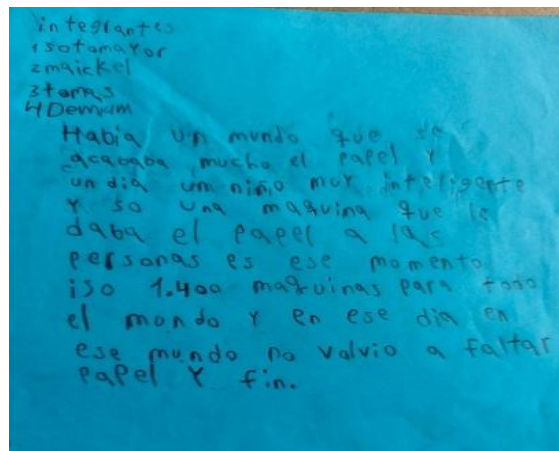 integrantes
1 sotomayor
2 maickel
3 tomas
4 Demian
Habia un mundo que se
acababa mucho el papel y
un dia un niño muy inteligente
y so una maquina que le
daba el papel a las
personas es ese momento
iso 1.400 maquinas para todo
el mundo y en ese dia en
ese mundo no volvio a faltar
papel y fin.